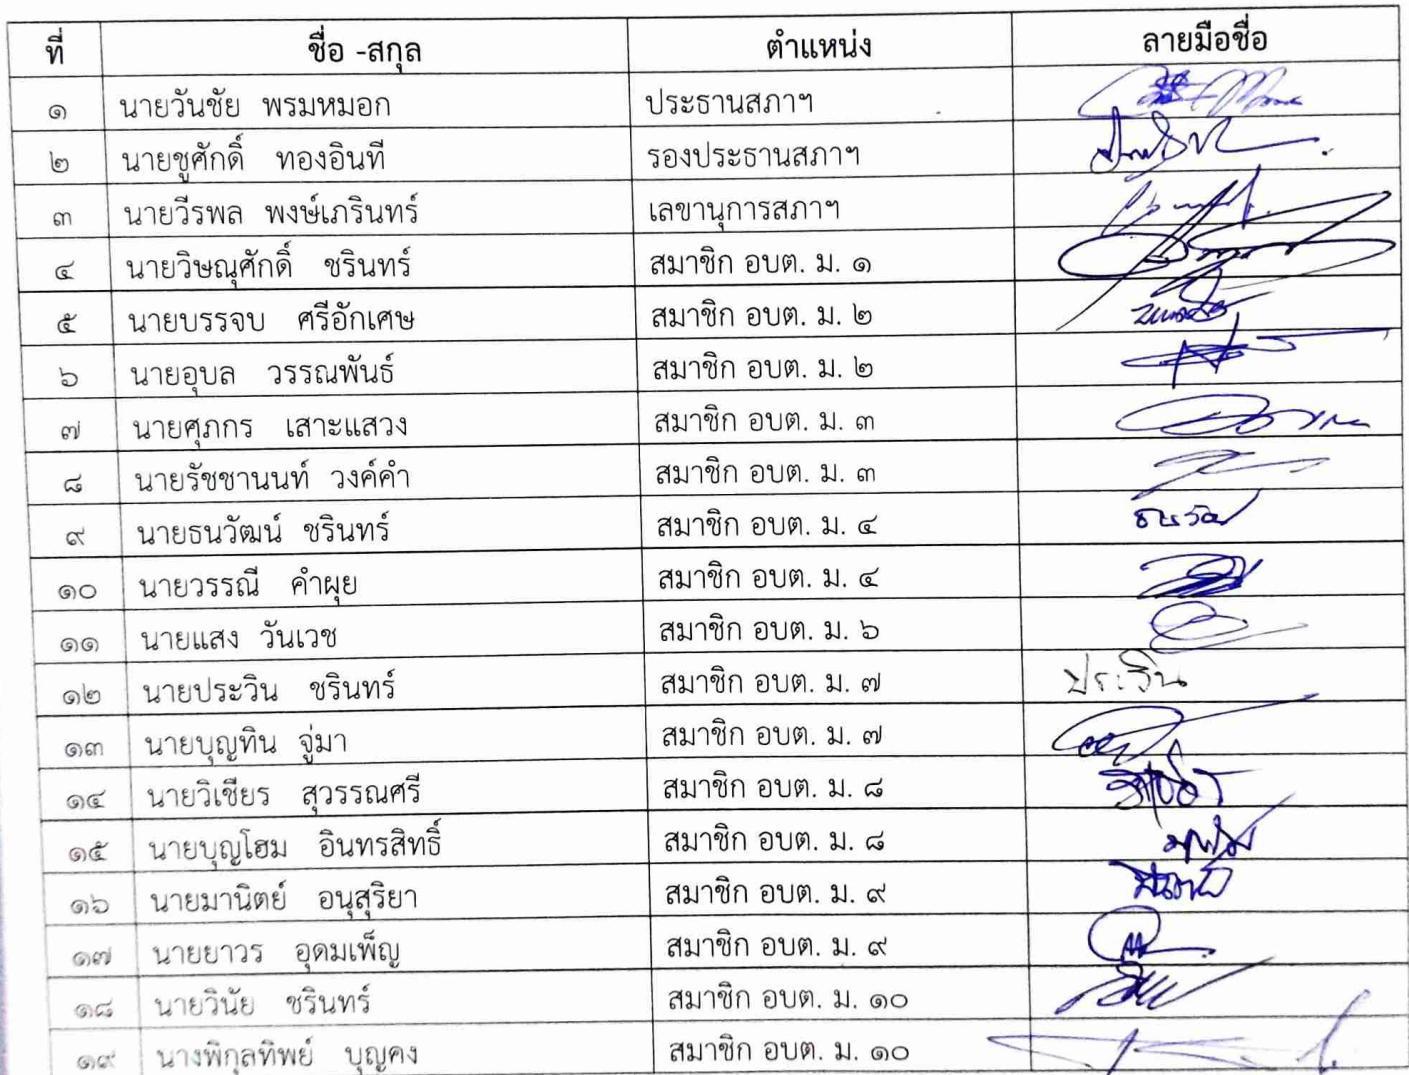 ที่ ชื่อ -สกุล ตำแหน่ง ลายมือชื่อ
๑ นายวันชัย พรมหมอก ประธานสภาฯ
๒ นายชูศักดิ์ ทองอินที รองประธานสภาฯ
๓ นายวีรพล พงษ์เภรินทร์ เลขานุการสภาฯ
๔ นายวิษณุศักดิ์ ชรินทร์ สมาชิก อบต. ม. ๑
๕ นายบรรจบ ศรีอักเศษ สมาชิก อบต. ม. ๒
๖ นายอุบล วรรณพันธ์ สมาชิก อบต. ม. ๒
๗ นายศุภกร เสาะแสวง สมาชิก อบต. ม. ๓
๘ นายรัชชานนท์ วงค์คำ สมาชิก อบต. ม. ๓
๙ นายธนวัฒน์ ชรินทร์ สมาชิก อบต. ม. ๔
๑๐ นายวรรณี คำผุย สมาชิก อบต. ม. ๔
๑๑ นายแสง วันเวช สมาชิก อบต. ม. ๖
๑๒ นายประวิน ชรินทร์ สมาชิก อบต. ม. ๗ ประวิน
๑๓ นายบุญทิน จู่มา สมาชิก อบต. ม. ๗
๑๔ นายวิเชียร สุวรรณศรี สมาชิก อบต. ม. ๘
๑๕ นายบุญโฮม อินทรสิทธิ์ สมาชิก อบต. ม. ๘
๑๖ นายมานิตย์ อนุสุริยา สมาชิก อบต. ม. ๙
๑๗ นายยาวร อุดมเพ็ญ สมาชิก อบต. ม. ๙
๑๘ นายวินัย ชรินทร์ สมาชิก อบต. ม. ๑๐
๑๙ นางพิกุลทิพย์ บุญคง สมาชิก อบต. ม. ๑๐